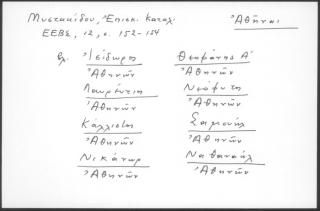 Μυστακίδου, Ἐπισκ. Κατάλ. Ἀθῆναι
ΕΕΒΣ, 12, σ. 152-154
βλ. Ἰσίδωρος Θεοφάνης Α΄
Ἀθηνῶν Ἀθηνῶν
Λαυρέντιος Νεόφυτος
Ἀθηνῶν Ἀθηνῶν
Κάλλιστος Σαμουήλ
Ἀθηνῶν Ἀθηνῶν
Νικάνωρ Ναθαναήλ
Ἀθηνῶν Ἀθηνῶν